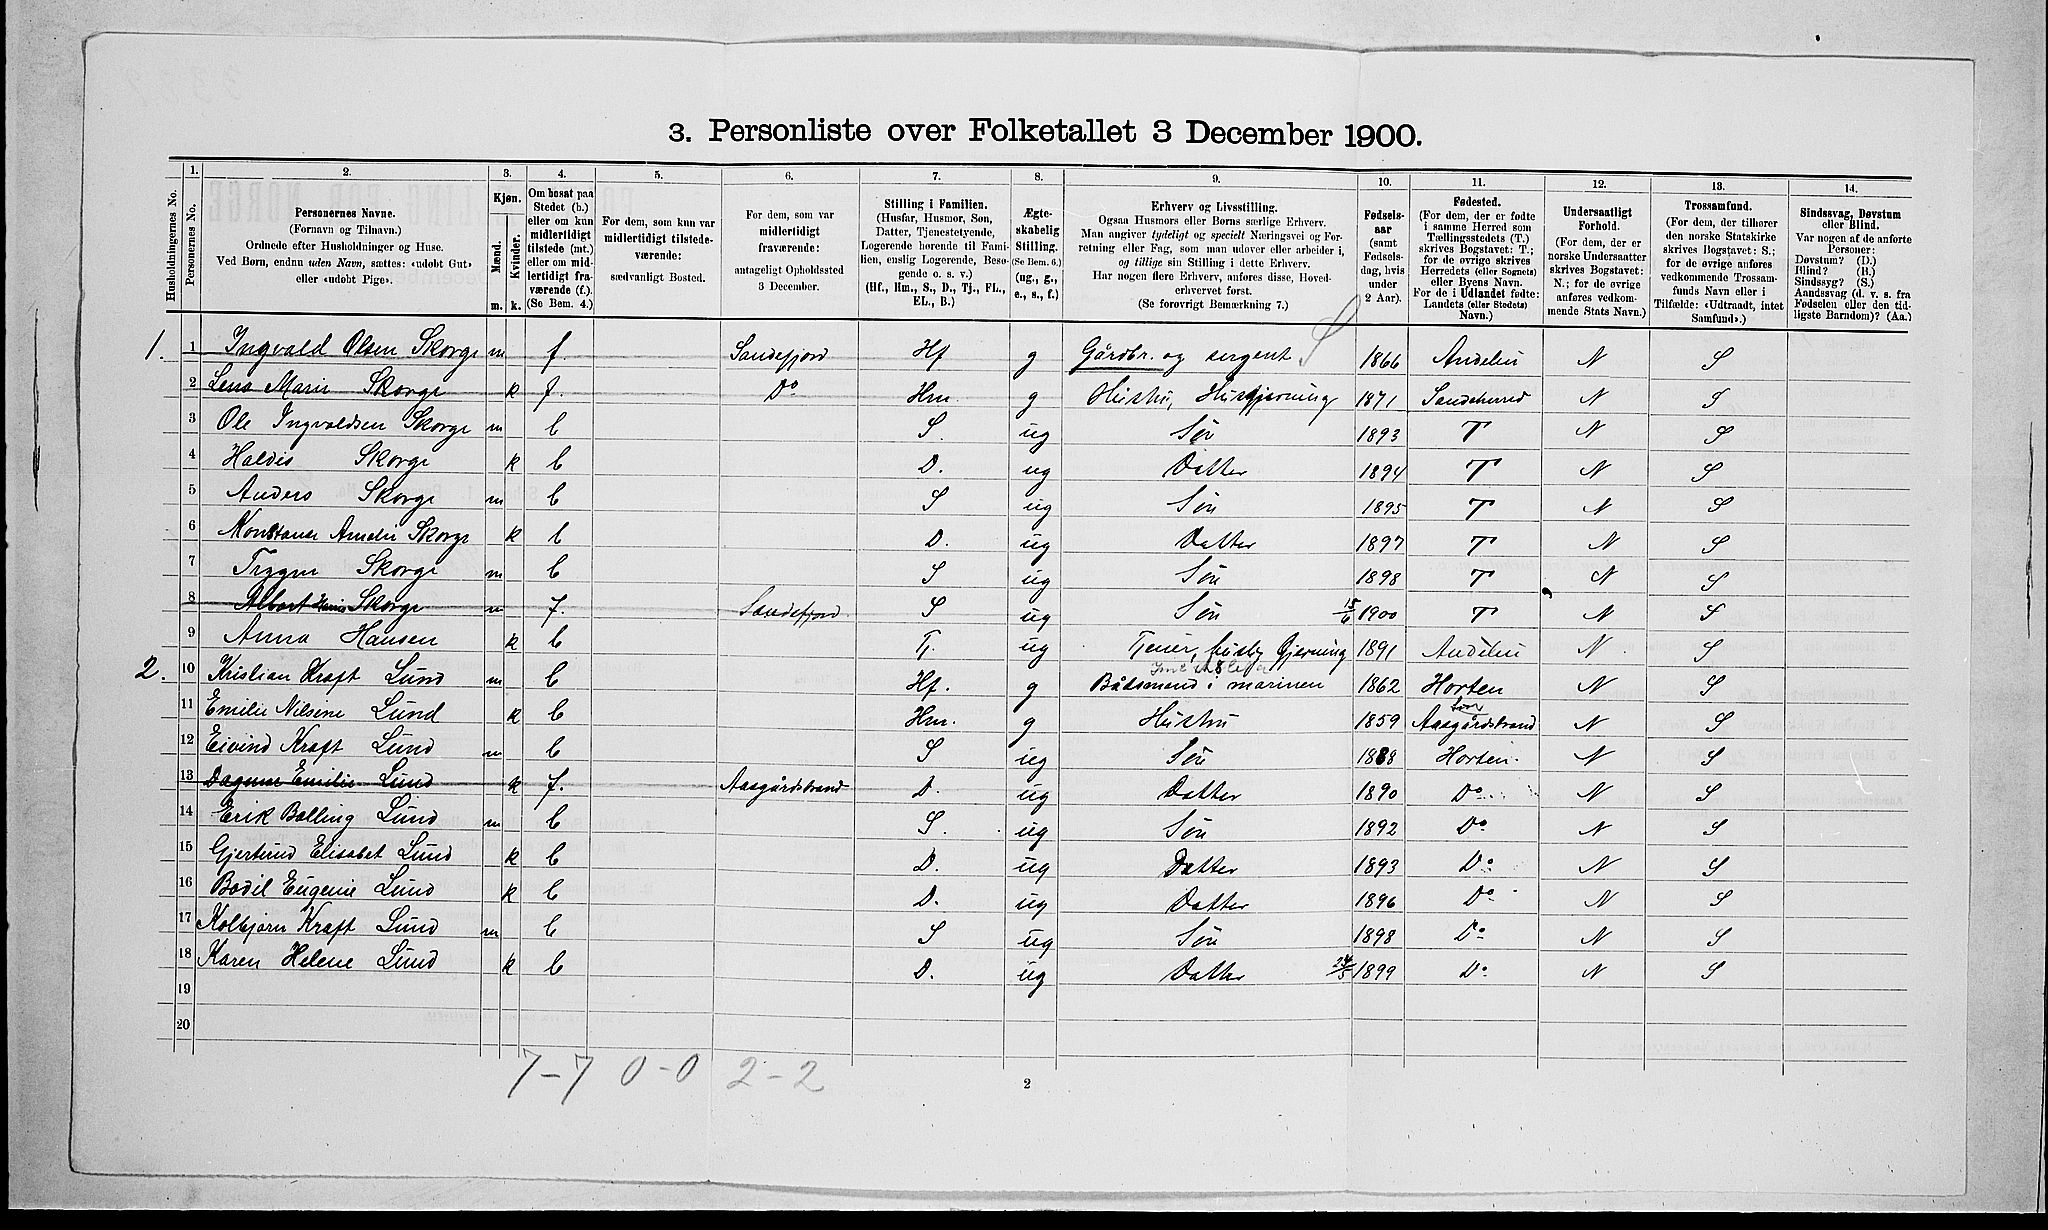 3. Personliste over Folketallet 3 December 1900.
Husholdningernes No.
1. Personernes No.
2. Personernes Navne. (Fornavn og Tilnavn.) Ordnede efter Husholdninger og Huse. Ved Børn, endnu uden Navn, sættes: «udøbt Gut» eller «udøbt Pige».
3. Kjøn. Mænd. Kvinder. m. k.
4. Om bosat paa Stedet (b.) eller om kun midlertidigt tilstede (mt.) eller om midlertidigt fraværende (f.). (Se Bem. 4.)
5. For dem, som kun var midlertidigt tilstedeværende: sædvanligt Bosted.
6. For dem, som var midlertidigt fraværende: antageligt Opholdssted 3 December.
7. Stilling i Familien. (Husfar, Husmor, Søn, Datter, Tjenestetyende, Logerende hørende til Familien, enslig Logerende, Besøgende o. s. v.) (Hf., Hm., S., D., Tj., FL., EL., B.)
8. Ægteskabelig Stilling. (Se Bem. 6.) (ug., g., e., s., f.)
9. Erhverv og Livsstilling. Ogsaa Husmors eller Børns særlige Erhverv. Man angiver tydeligt og specielt Næringsvei og Forretning eller Fag, som man udøver eller arbeider i, og tillige sin Stilling i dette Erhverv. Har nogen flere Erhverv, anføres disse, Hovederhvervet først. (Se forøvrigt Bemærkning 7.)
10. Fødselsaar (samt Fødselsdag, hvis under 2 Aar).
11. Fødested. (For dem, der er fødte i samme Herred som Tællingsstedets (T.) skrives Bogstavet: T.; for de øvrige skrives Herredets (eller Sognets) eller Byens Navn. For de i Udlandet fødte: Landets (eller Stedets) Navn.)
12. Undersaatligt Forhold. (For dem, der er norske Undersaatter skrives Bogstavet: N.; for de øvrige anføres vedkommende Stats Navn.)
13. Trossamfund. (For dem, der tilhører den norske Statskirke skrives Bogstavet: S.; for de øvrige anføres vedkommende Trossamfunds Navn eller i Tilfælde: «Udtraadt, intet Samfund».)
14. Sindssvag, Døvstum eller Blind. Var nogen af de anførte Personer: Døvstum? (D.) Blind? (B.) Sindssyg? (S.) Aandssvag (d. v. s. fra Fødselen eller den tidligste Barndom)? (Aa.)
1. 1 Ingvald Olsen Skorge m f. Sandefjord Hf g Gårdbr. og sergent S 1866 Andebu N S
2 Lena Marie Skorge k f. Do Hm. g Hustru, Husgjerning 1871 Sandeherred N S
3 Ole Ingvaldsen Skorge m b S. ug Søn 1893 T N S
4 Haldis Skorge k b D. ug Datter 1894 T N S
5 Anders Skorge m b S ug Søn 1895 T N S
6 Konstance Amelie Skorge k b D. ug Datter 1897 T N S
7 Trygve Skorge m b S ug Søn 1898 T N S
8 Albert Skorge m f. Sandefjord S ug Søn 15/6 1900 T N S
9 Anna Hansen k b Tj. ug Tjener, husly Gjerning 1891 Andebu N S
2. 10 Kristian Kraft Lund m b Hf. g Bådsmand i marinen 1862 Horten N S
11 Emilie Nilsine Lund k b Hm. g Hustru 1859 Aasgårdstrand N S
12 Eivind Kraft Lund m b S ug Søn 1888 Horten. N S
13 Dagmar Emilie Lund k f. Aasgårdstrand D. ug Datter 1890 Do N S
14 Erik Balling Lund m b S. ug Søn 1892 Do N S
15 Gjertrud Elisabet Lund k b D. ug Datter 1893 Do N S
16 Bodil Eugenie Lund k b D. ug Datter 1896 Do N S
17 Kolbjørn Kraft Lund m b S ug Søn 1898 Do N S
18 Karen Helene Lund k b D. ug Datter 24/5 1899 Do N S
19
20
7-7 0-0 2-2
2